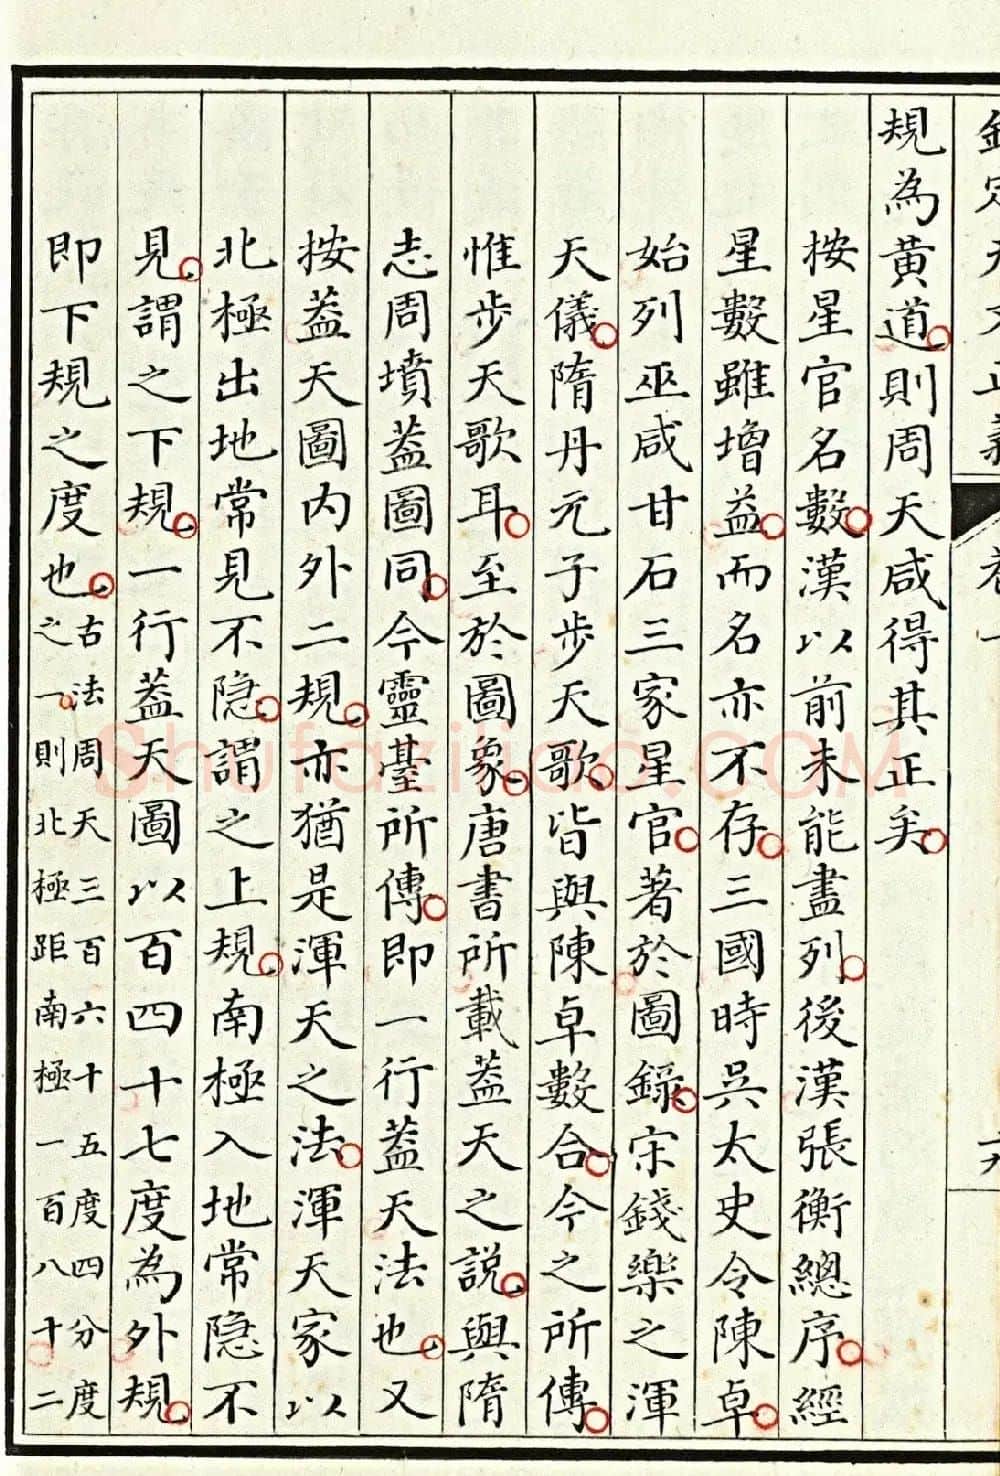 規為黄道則周天咸得其正矣
按星官名數漢以前未能盡列後漢張衡總序經
星數雖增益而名亦不存三國時吳太史令陳卓
始列巫咸甘石三家星官著於圖錄宋錢樂之渾
天儀隋丹元子步天歌皆與陳卓數合今之所傳
惟步天歌耳至於圖象唐書所載葢天之説與隋
志周墳葢圖同今靈臺所傳即一行葢天法也又
按葢天圖内外二規亦猶是渾天之法渾天家以
北極出地常見不隐謂之上規南極入地常隐不
見謂之下規一行葢天圖以百四十七度為外規
即下規之度也古法周天三百六十五度四分度
之一則北極距南極一百八十二
Shufaziliao.COM